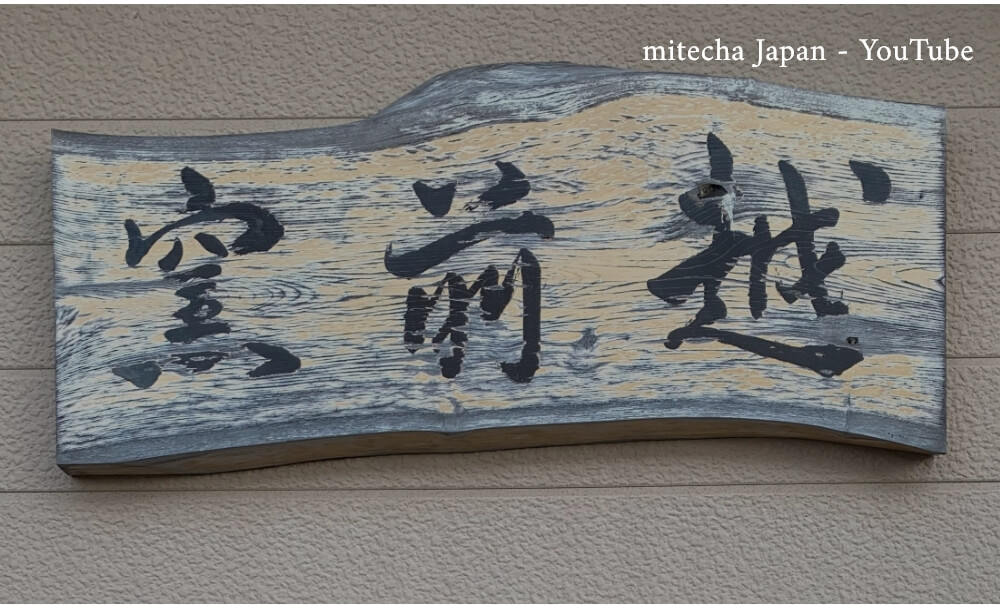 mitecha Japan - YouTube
越前窯